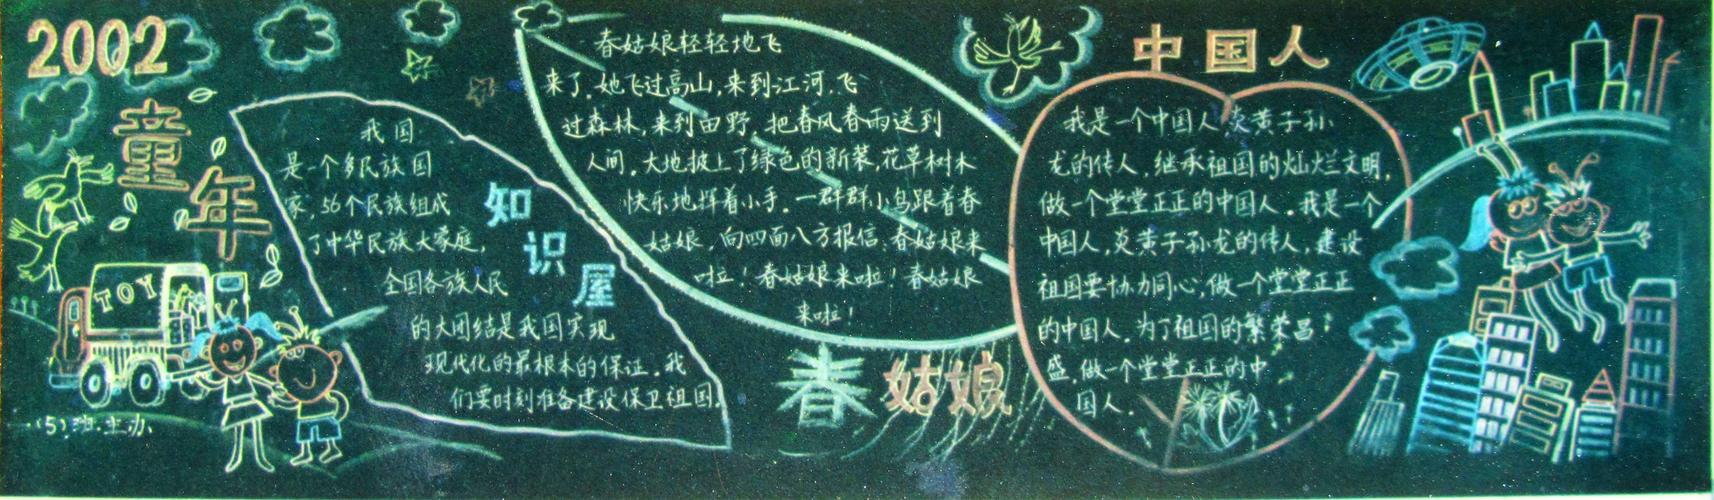 2002
童年
TOY
(5)班.主办
知识屋
我国
是一个多民族国
家,56个民族组成
了中华民族大家庭,
全国各族人民
的大团结是我国实现
现代化的最根本的保证.我
们要时刻准备建设保卫祖国.
春姑娘轻轻地飞
来了.她飞过高山,来到江河.飞
过森林,来到田野.把春风春雨送到
人间.大地披上了绿色的新装,花草树木
快乐地挥着小手.一群群小鸟跟着春
姑娘,向四面八方报信:春姑娘来
啦!春姑娘来啦!春姑娘
来啦!
春姑娘
中国人
我是一个中国人,炎黄子孙
龙的传人.继承祖国的灿烂文明,
做一个堂堂正正的中国人.我是一个
中国人,炎黄子孙龙的传人,建设
祖国要协力同心,做一个堂堂正正
的中国人.为了祖国的繁荣昌
盛,做一个堂堂正正的中
国人.